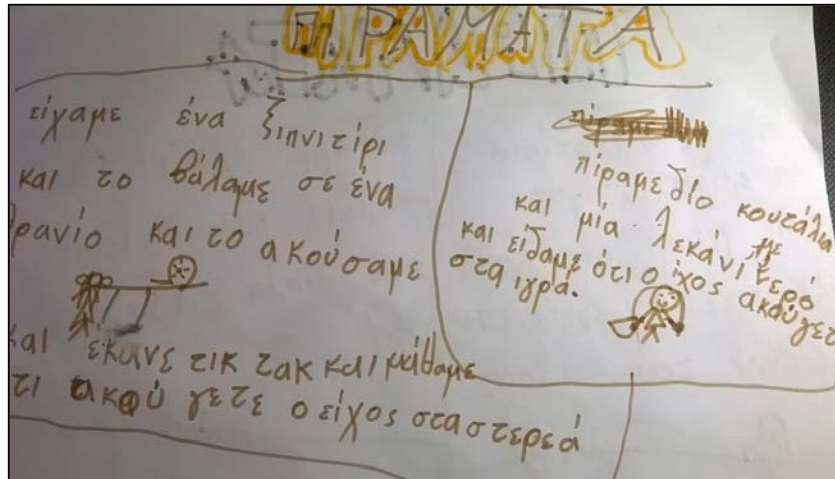 ΠΙΡΑΜΑΤΑ
είχαμε ένα ξιπνιτίρι
και το βάλαμε σε ένα
θρανίο και το ακούσαμε
και έκανε τικ τακ και μάθαμε
τι ακού γετε ο είχος στα στερεά
πίραμε
πίραμε δίο κουτάλια
και μία λεκάνι με νερό
και είδαμε ότι ο ίχος ακούγετ
στα ιγρά.